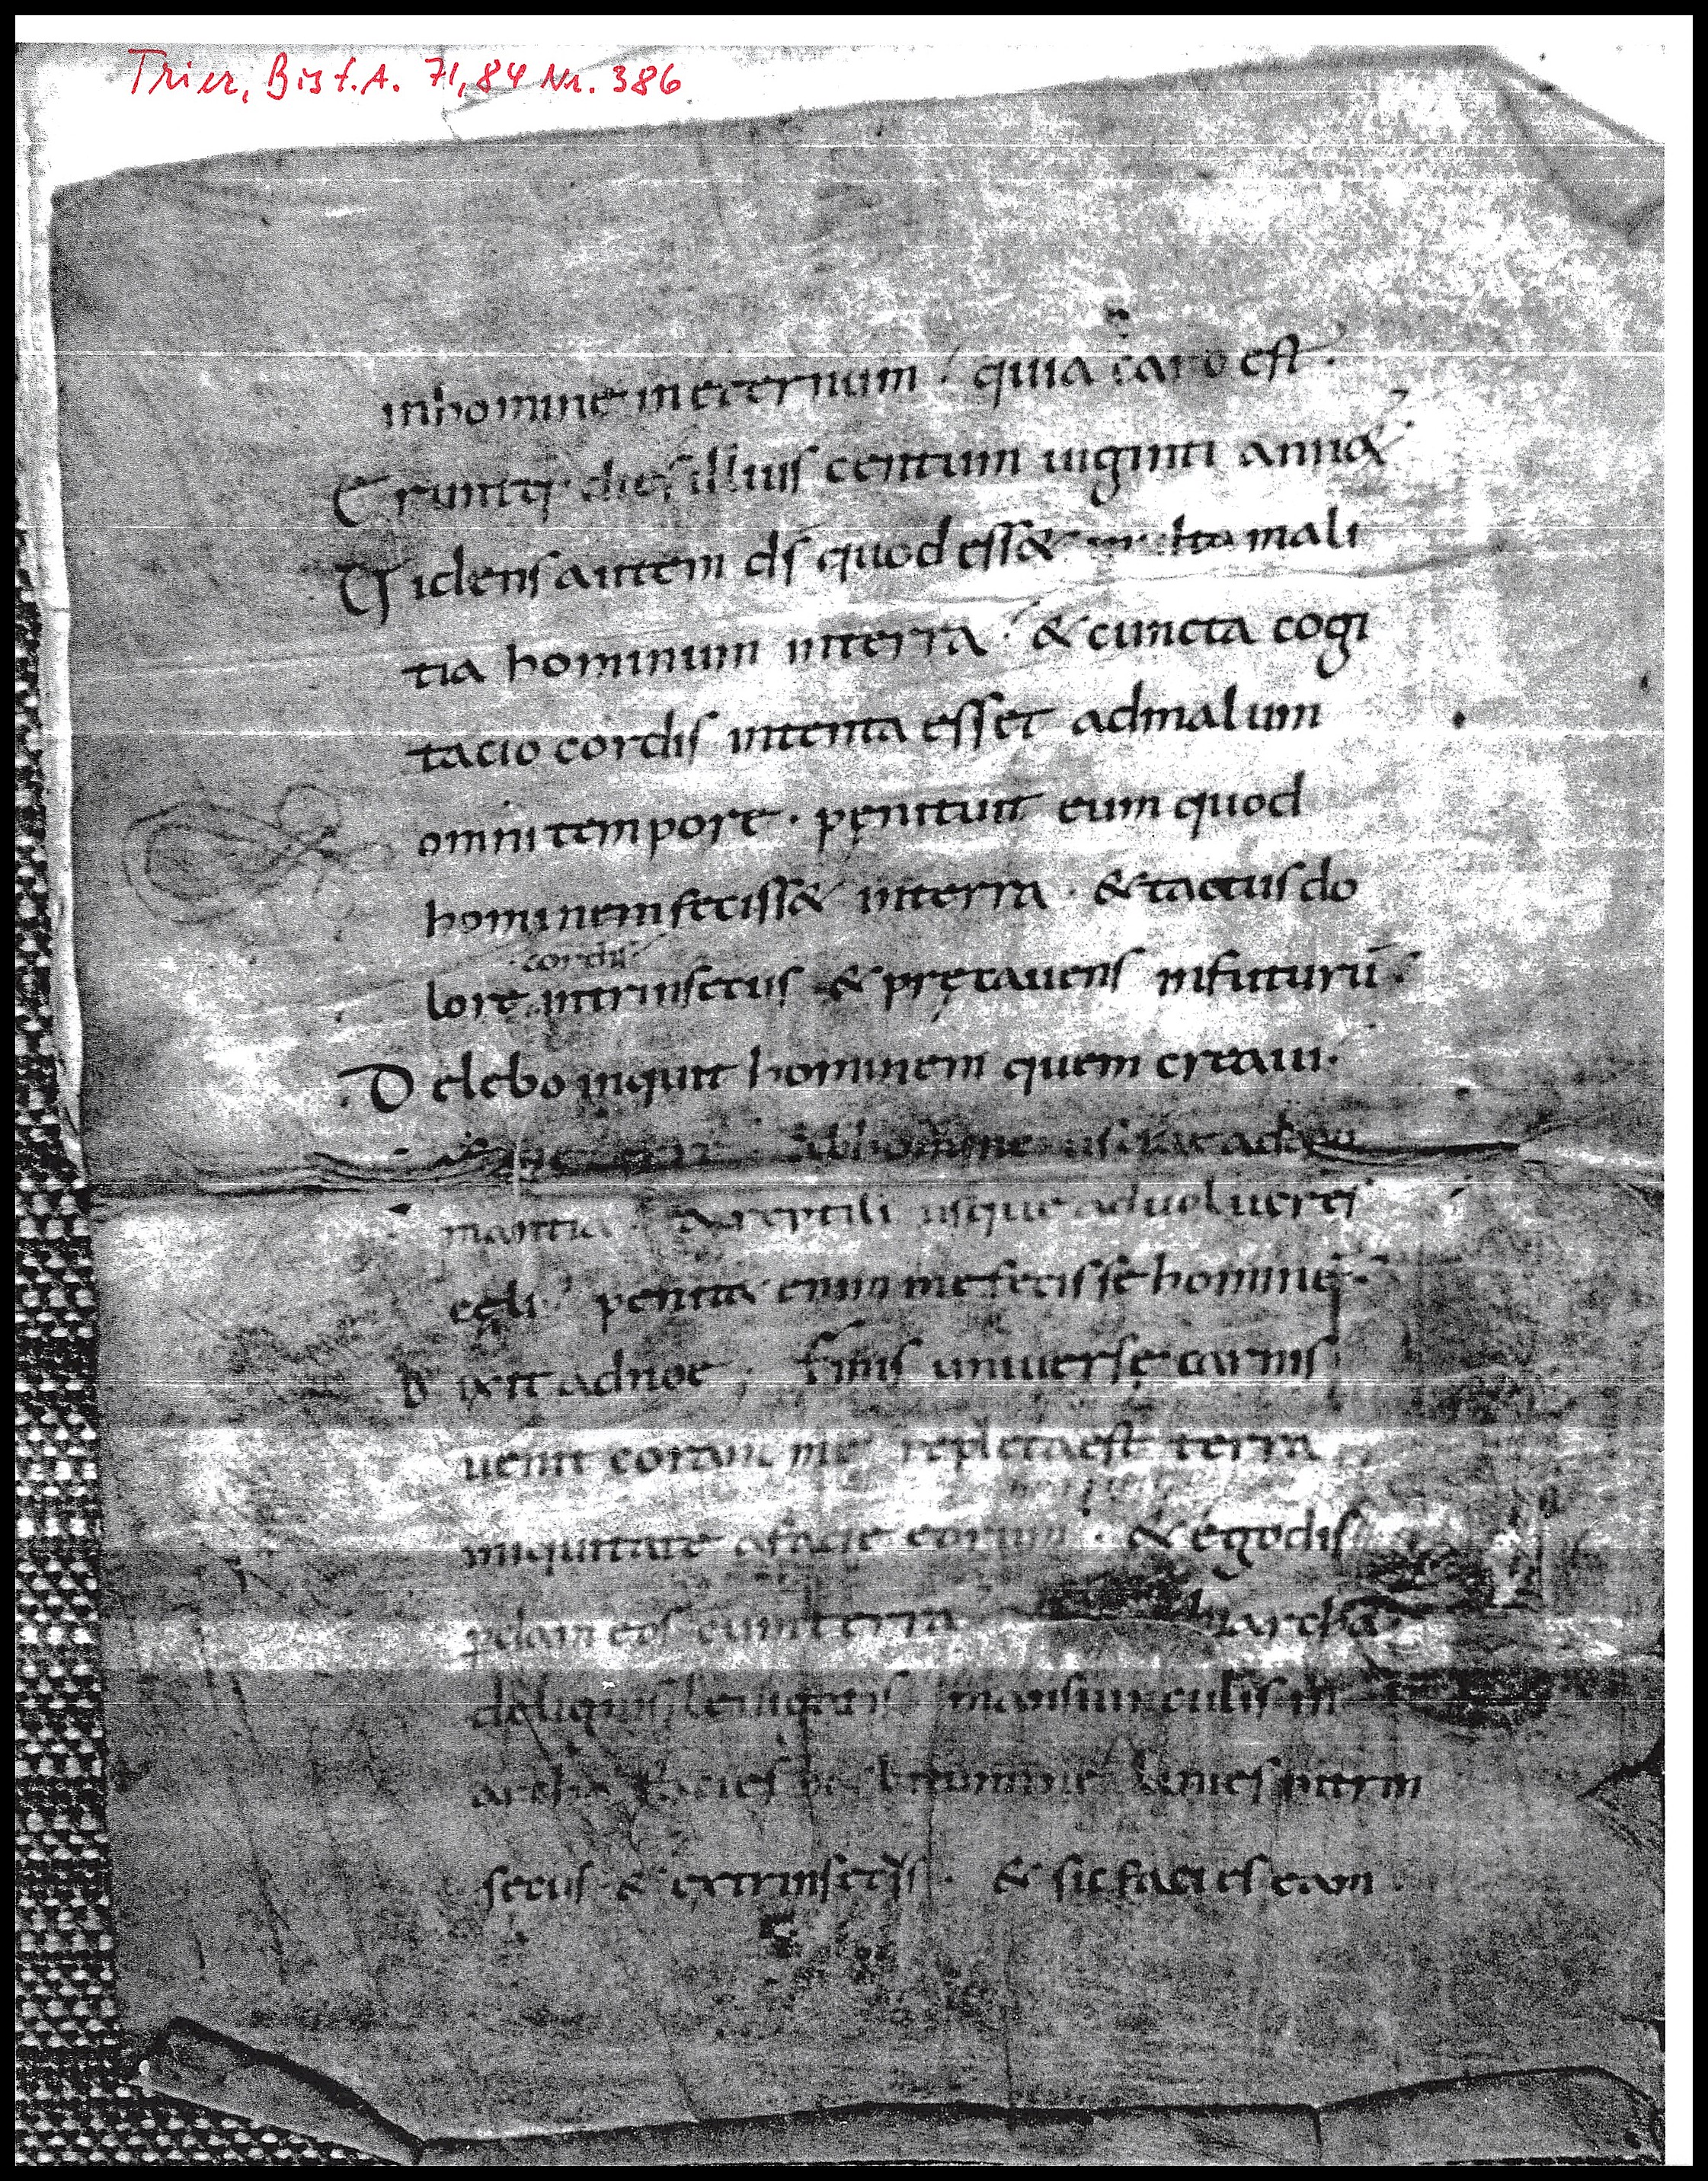 Trier, Bist.A. 71,84 Nr. 386
inhomine ineternum quia caro est.
Eruntq; dies illius centum uiginti annoꝝ
Uidens autem ds quod ess& multa mali
tia hominum interra & cuncta cogi
tacio cordis intenta esset admalum
omni tempore. pęnituit eum quod
hominem feciss& interra. & tactus do
cordis
lore intrinsecus & pręcauens infuturū.
Delebo inquit hominem quem creaui.
abhomine usque ad
mantia. Areptili usque aduolucres
cęli penit& enim mefecisse hominē.
Dixit adnoe; finis uniuersę carnis
uenit coram me repleta est terra
iniquitate afacie eorum. & ego dis
pdam eos cumterra archā
delignis leuigatis mansiunculis in
archa facies & bitumine linies intrin
secus & extrinsecus. & sic facies eam.